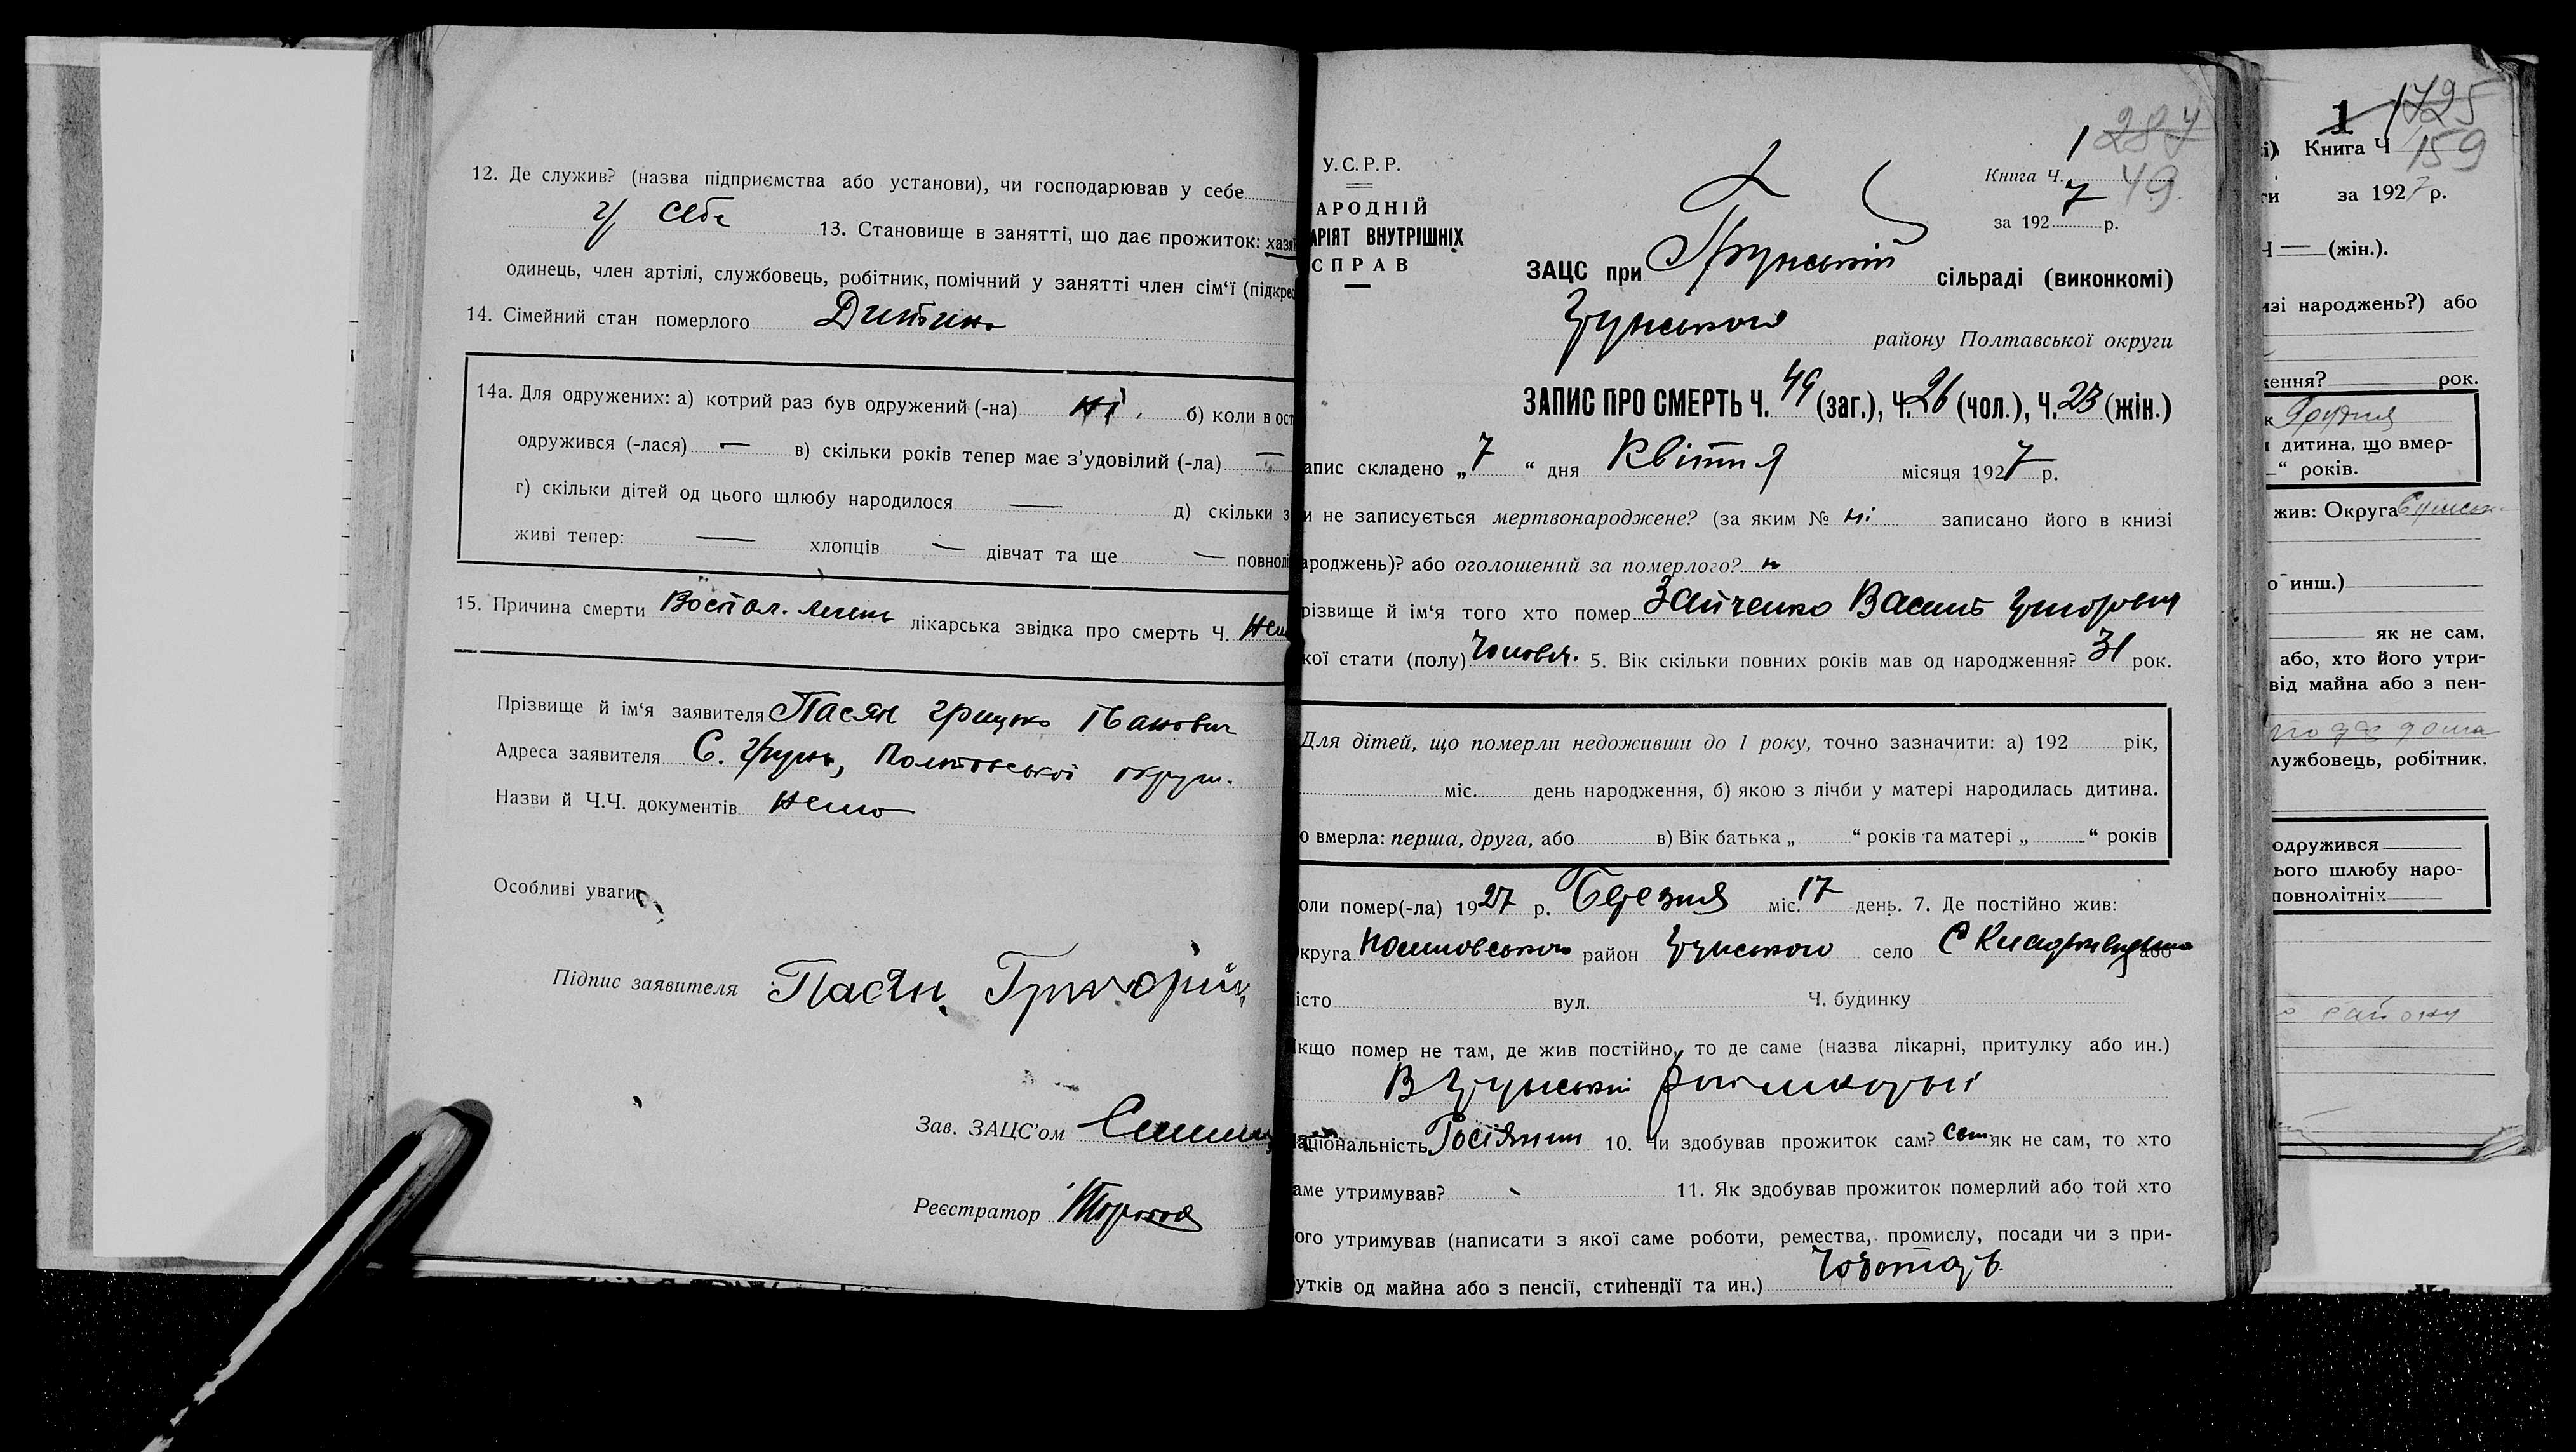 12. Де служив? (назва підприємства або установи), чи господарював у себе
у себе 13. Становище в занятті, що дає прожиток: хазя
одинець, член артілі, службовець, робітник, помічний у занятті член сім'ї (підкрес
14. Сімейний стан померлого Дитина
14а. Для одружених: а) котрий раз був одружений (-на) ні, б) коли в ост
одружився (-лася) — в) скільки років тепер має з'удовілий (-ла) —
г) скільки дітей од цього щлюбу народилося — д) скільки з
живі тепер: — хлопців — дівчат та ще — повнолі
15. Причина смерти Воспал. легень лікарська звідка про смерть Ч.
Прізвище й ім'я заявителя Пасян Грицько Іванович
Адреса заявителя С. Грунь, Полтавської округи.
Назви й Ч.Ч. документів Нема
Особливі уваги
Підпис заявителя Пасян Григорій
Зав. ЗАЦС'ом
Реєстратор
У.С.Р.Р.
АРОДНІЙ
АРІЯТ ВНУТРІШНІХ
СПРАВ
1 287
Книга Ч. 49
за 1927 р.
ЗАЦС при Грунській сільраді (виконкомі)
Грунського району Полтавської округи
ЗАПИС ПРО СМЕРТЬ Ч. 49 (заг.), Ч. 26 (чол.), Ч. 23 (жін.)
апис складено „7“ дня Квітня місяця 1927 р.
и не записується мертвонароджене? (за яким № ні записано його в книзі
ароджень)? або оголошений за померлого? н
різвище й ім'я того хто помер Зайченко Василь Григорович
кої стати (полу) Чоловіч. 5. Вік скільки повних років мав од народження? 31 рок.
Для дітей, що померли недоживши до 1 року, точно зазначити: а) 192 рік,
міс. день народження, б) якою з лічби у матері народилась дитина.
о вмерла: перша, друга, або в) Вік батька „ “ років та матері „ “ років
оли помер(-ла) 1927 р. Березня міс. 17 день. 7. Де постійно жив:
круга Полтавського район Грунського село С або
істо вул. Ч. будинку
кщо помер не там, де жив постійно, то де саме (назва лікарні, притулку або ин.)
В Грунській райлікарні
аціональність Росіянин 10. Чи здобував прожиток сам? Сам як не сам, то хто
аме утримував? 11. Як здобував прожиток померлий або той хто
ого утримував (написати з якої саме роботи, ремества, промислу, посади чи з при-
утків од майна або з пенсії, стипендії та ин.) Чоботарь
1 1725
і) Книга Ч 159
ги за 1927 р.
Ч — (жін.).
изі народжень?) або
ження? рок.
к Грудня
дитина, що вмер-
—“ років.
жив: Округа
о инш.)
як не сам,
або, хто його утри-
від майна або з пен-
лужбовець, робітник,
одружився
ього шлюбу наро-
повнолітніх
району